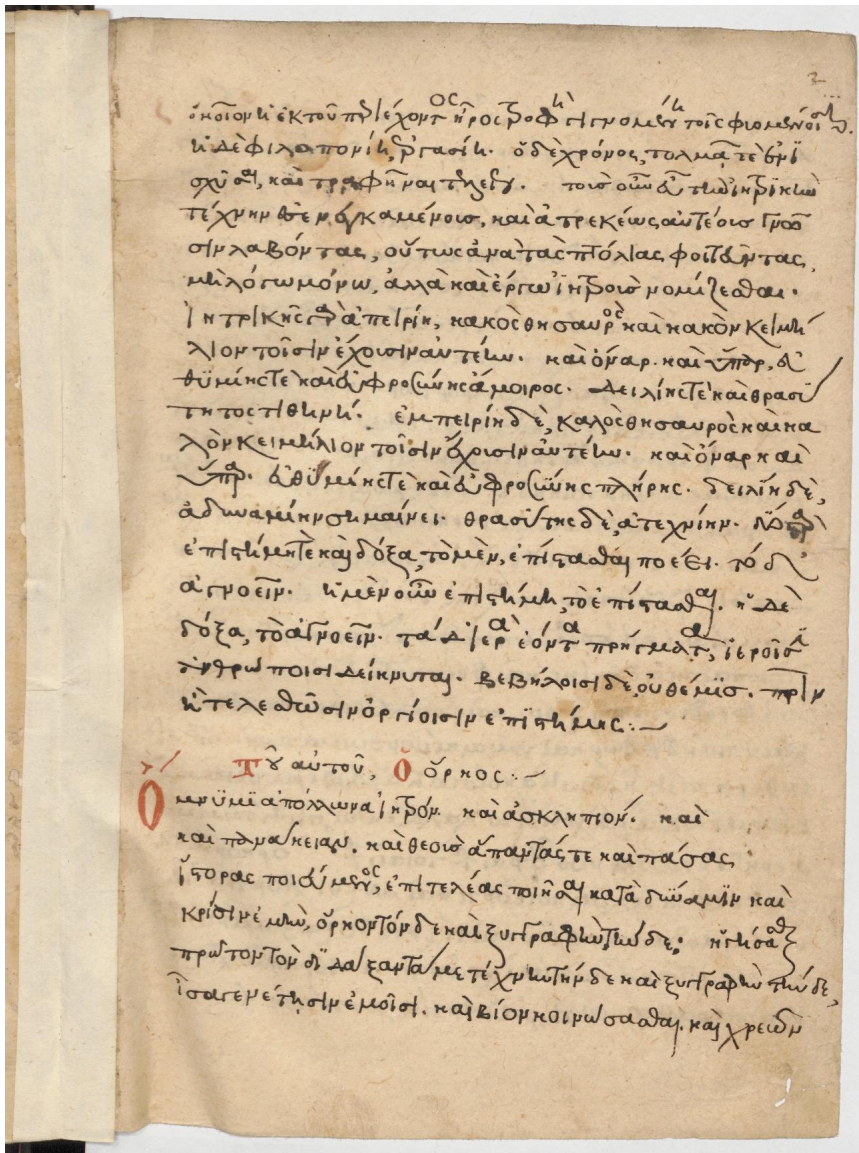 2
ὁκοῖον ἡ ἐκ τοῦ περιέχοντος ἠέρος τροφὴ γιγνομένη τοῖς φυομένοισιν.
ἡ δὲ φιλοπονίη, ἐργασίη. ὁ δὲ χρόνος, τολμα τὲ ἐνι
σχῦσαι, καὶ τραφῆναι τελέως. τοῖς οὖν ἐν τῇ ἰητρικῇ
τέχνῃ ἐνεγκαμένοις, καὶ ἀτρεκέως αὐτέοις γνῶ
σιν λαβόντας, οὕτως ἀνὰ τὰς πτόλιας φοιτῶντας,
μὴ λόγῳ μόνῳ, ἀλλὰ καὶ ἔργῳ ἰητροῖς νομίζεσθαι.
Ἰητρικῆς γὰρ ἀπειρίη, κακὸς θησαυρὸς καὶ κακὸν κειμή
λιον τοῖσιν ἔχουσιν αὐτέην. καὶ ὄναρ. καὶ ὕπαρ, εὐ
θυμίης τὲ καὶ εὐφροσύνης ἄμοιρος. δειλίης τὲ καὶ θρασύ
τητος τιθήνη. ἐμπειρίη δὲ, καλὸς θησαυρὸς καὶ κα
λὸν κειμήλιον τοῖσιν ἔχουσιν αὐτέην. καὶ ὄναρ καὶ
ὕπαρ. εὐθυμίης τὲ καὶ εὐφροσύνης πλήρης. δειλίη δὲ,
ἀδυναμίην σημαίνει. θρασύτης δὲ, ἀτεχνίην. δύο γὰρ
ἐπιστήμη τὲ καὶ δόξα, τὸ μὲν, ἐπίστασθαι ποιέει. τὸ δὲ
ἀγνοεῖν. ἡ μὲν οὖν ἐπιστήμη, τὸ ἐπίστασθαι. ἡ δὲ
δόξα, τὸ ἀγνοεῖν. τὰ δ' ἱερὰ ἐόντα πρήγματα, ἱεροῖσιν
ἀνθρώποισι δείκνυται. βεβήλοισι δὲ, οὐ θέμις. πρὶν
ἢ τελεσθῶσιν ὀργίοισιν ἐπιστήμης:
Τοῦ αὐτοῦ, ὁ ὅρκος:
Ὀμνύμι ἀπόλλωνα ἰητρόν. καὶ ἀσκληπιόν. καὶ
καὶ πανάκειαν. καὶ θεοὺς ἅπαντάς τε καὶ πάσας
ἵστορας ποιεύμενος, ἐπιτελέας ποιῆσαι κατὰ δύναμιν καὶ
κρίσιν ἐμὴν, ὅρκον τόνδε καὶ ξυγγραφὴν τήνδε: ἡγήσασθαι
πρῶτον τὸν διδάξαντά με τέχνην τήνδε καὶ ξυγγραφὴν τήνδε,
ἴσα γενέτῃσιν ἐμοῖσι. καὶ βίον κοινώσασθαι. καὶ χρεῶν